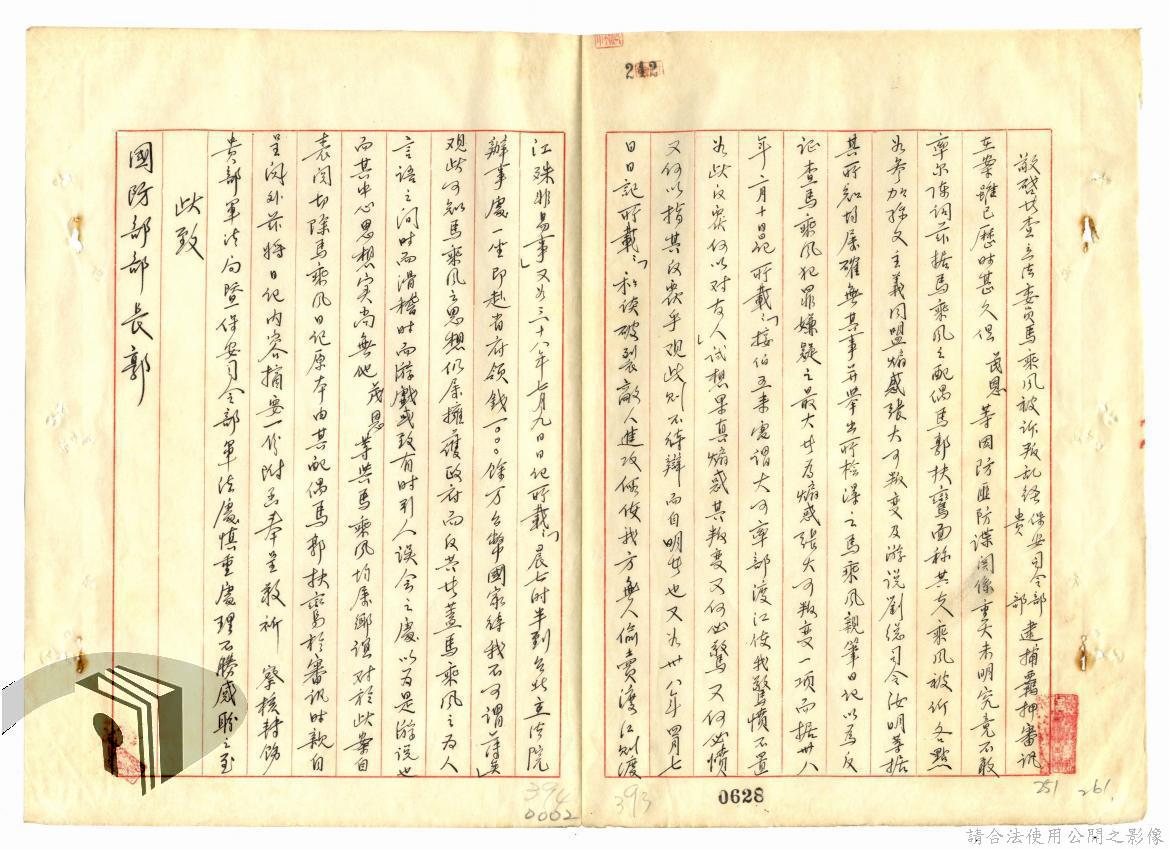 242
敬啓者查立法委員馬乘風被訴叛乱經保安司令部貴部逮捕羈押審訊
在案雖已歷時甚久但茂恩等因防匪防諜関係重大未明究竟不敢
率尔陳詞茲据馬乘風之配偶馬郭扶鸞面称其夫乘風被訴各點
如参加孫文主義同盟煽惑張大可叛变及游說劉総司令汝明等据
其所知均属確無其事并舉出所檢得之馬乘風親筆日记以為反
证查馬乘風犯罪嫌疑之最大者為煽惑張大可叛变一項而据卅八
年二月十日記所載「接伯五来電謂大可率部渡江使我驚憤不置
如此反覆何以对友人」试想果真煽惑其叛变又何必驚又何必憤
又何以指其反覆乎观此则不待辯而自明者也又如卅八年四月七
日日記所載「和谈破裂敵人進攻假使我方無人偷賣渡江则渡
江殊非易事」又如三十八年七月九日日记所載「晨七时半到台北立法院
辦事處一坐即赴省府領钱一〇〇〇餘万台幣國家待我不可謂薄矣」
观此可知馬乘風之思想仍属擁護政府而反共者蓋馬乘風之為人
言语之间时而滑稽时而游戲或致有时引人误会之處以为是游説也
而其中心思想实尚無他茂恩等與馬乘風均属鄉誼对於此案自
表関切除馬乘風日记原本由其配偶馬郭扶鸞於審訊时親自
呈閱外茲将日记内容摘要一份附函奉呈敬祈察核轉飭
貴部軍法局暨保安司令部軍法處慎重處理不勝感盼之至
此致
國防部部長郭
0628
393
394
0002
251
261
請合法使用公開之影像